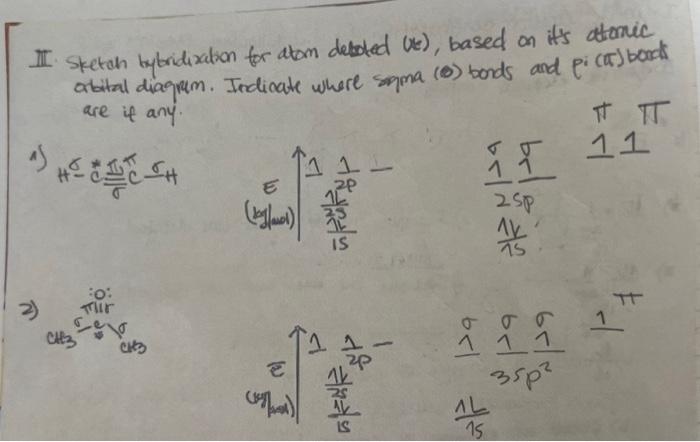 III. Sketch hybridization for atom denoted (*), based on it's atomic
orbital diagram. Indicate where sigma (σ) bonds and pi (π) bonds
are if any.
π π
1) H σ C * π π σ C σ H
E (kg/mol) 1 1 2p σ σ 1 1 1 1
1L 2S 2sp
1L 1S 1L 1S
2) :O: π σ
CH3 σ C * σ CH3
E 1 1 2p σ σ σ 1 1 1 1 π
1L 2S 3sp²
1L 1S 1L 1S